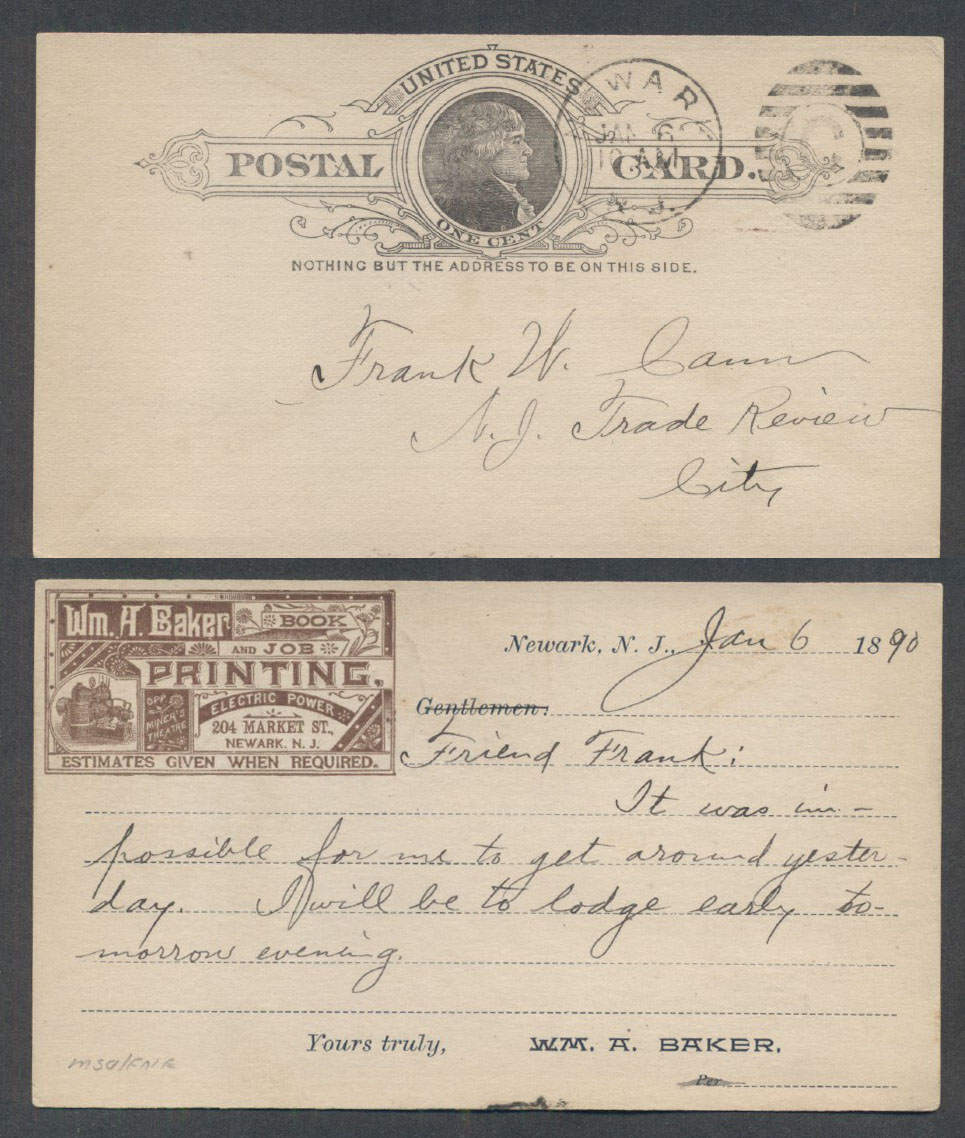 UNITED STATES
POSTAL CARD.
ONE CENT
WARK
JAN 6
10 AM
N.J.
C
NOTHING BUT THE ADDRESS TO BE ON THIS SIDE.
Frank W. Cann
N.J. Trade Review
City
Wm. A. Baker
BOOK
AND JOB
PRINTING,
OPP.
MINER'S
THEATRE
ELECTRIC POWER
204 MARKET ST.,
NEWARK. N. J.
ESTIMATES GIVEN WHEN REQUIRED.
Newark, N. J., Jan 6 1890
Gentlemen:
Friend Frank:
It was im-
possible for me to get around yester-
day. I will be to lodge early to-
morrow evening.
Yours truly, WM. A. BAKER.
Per